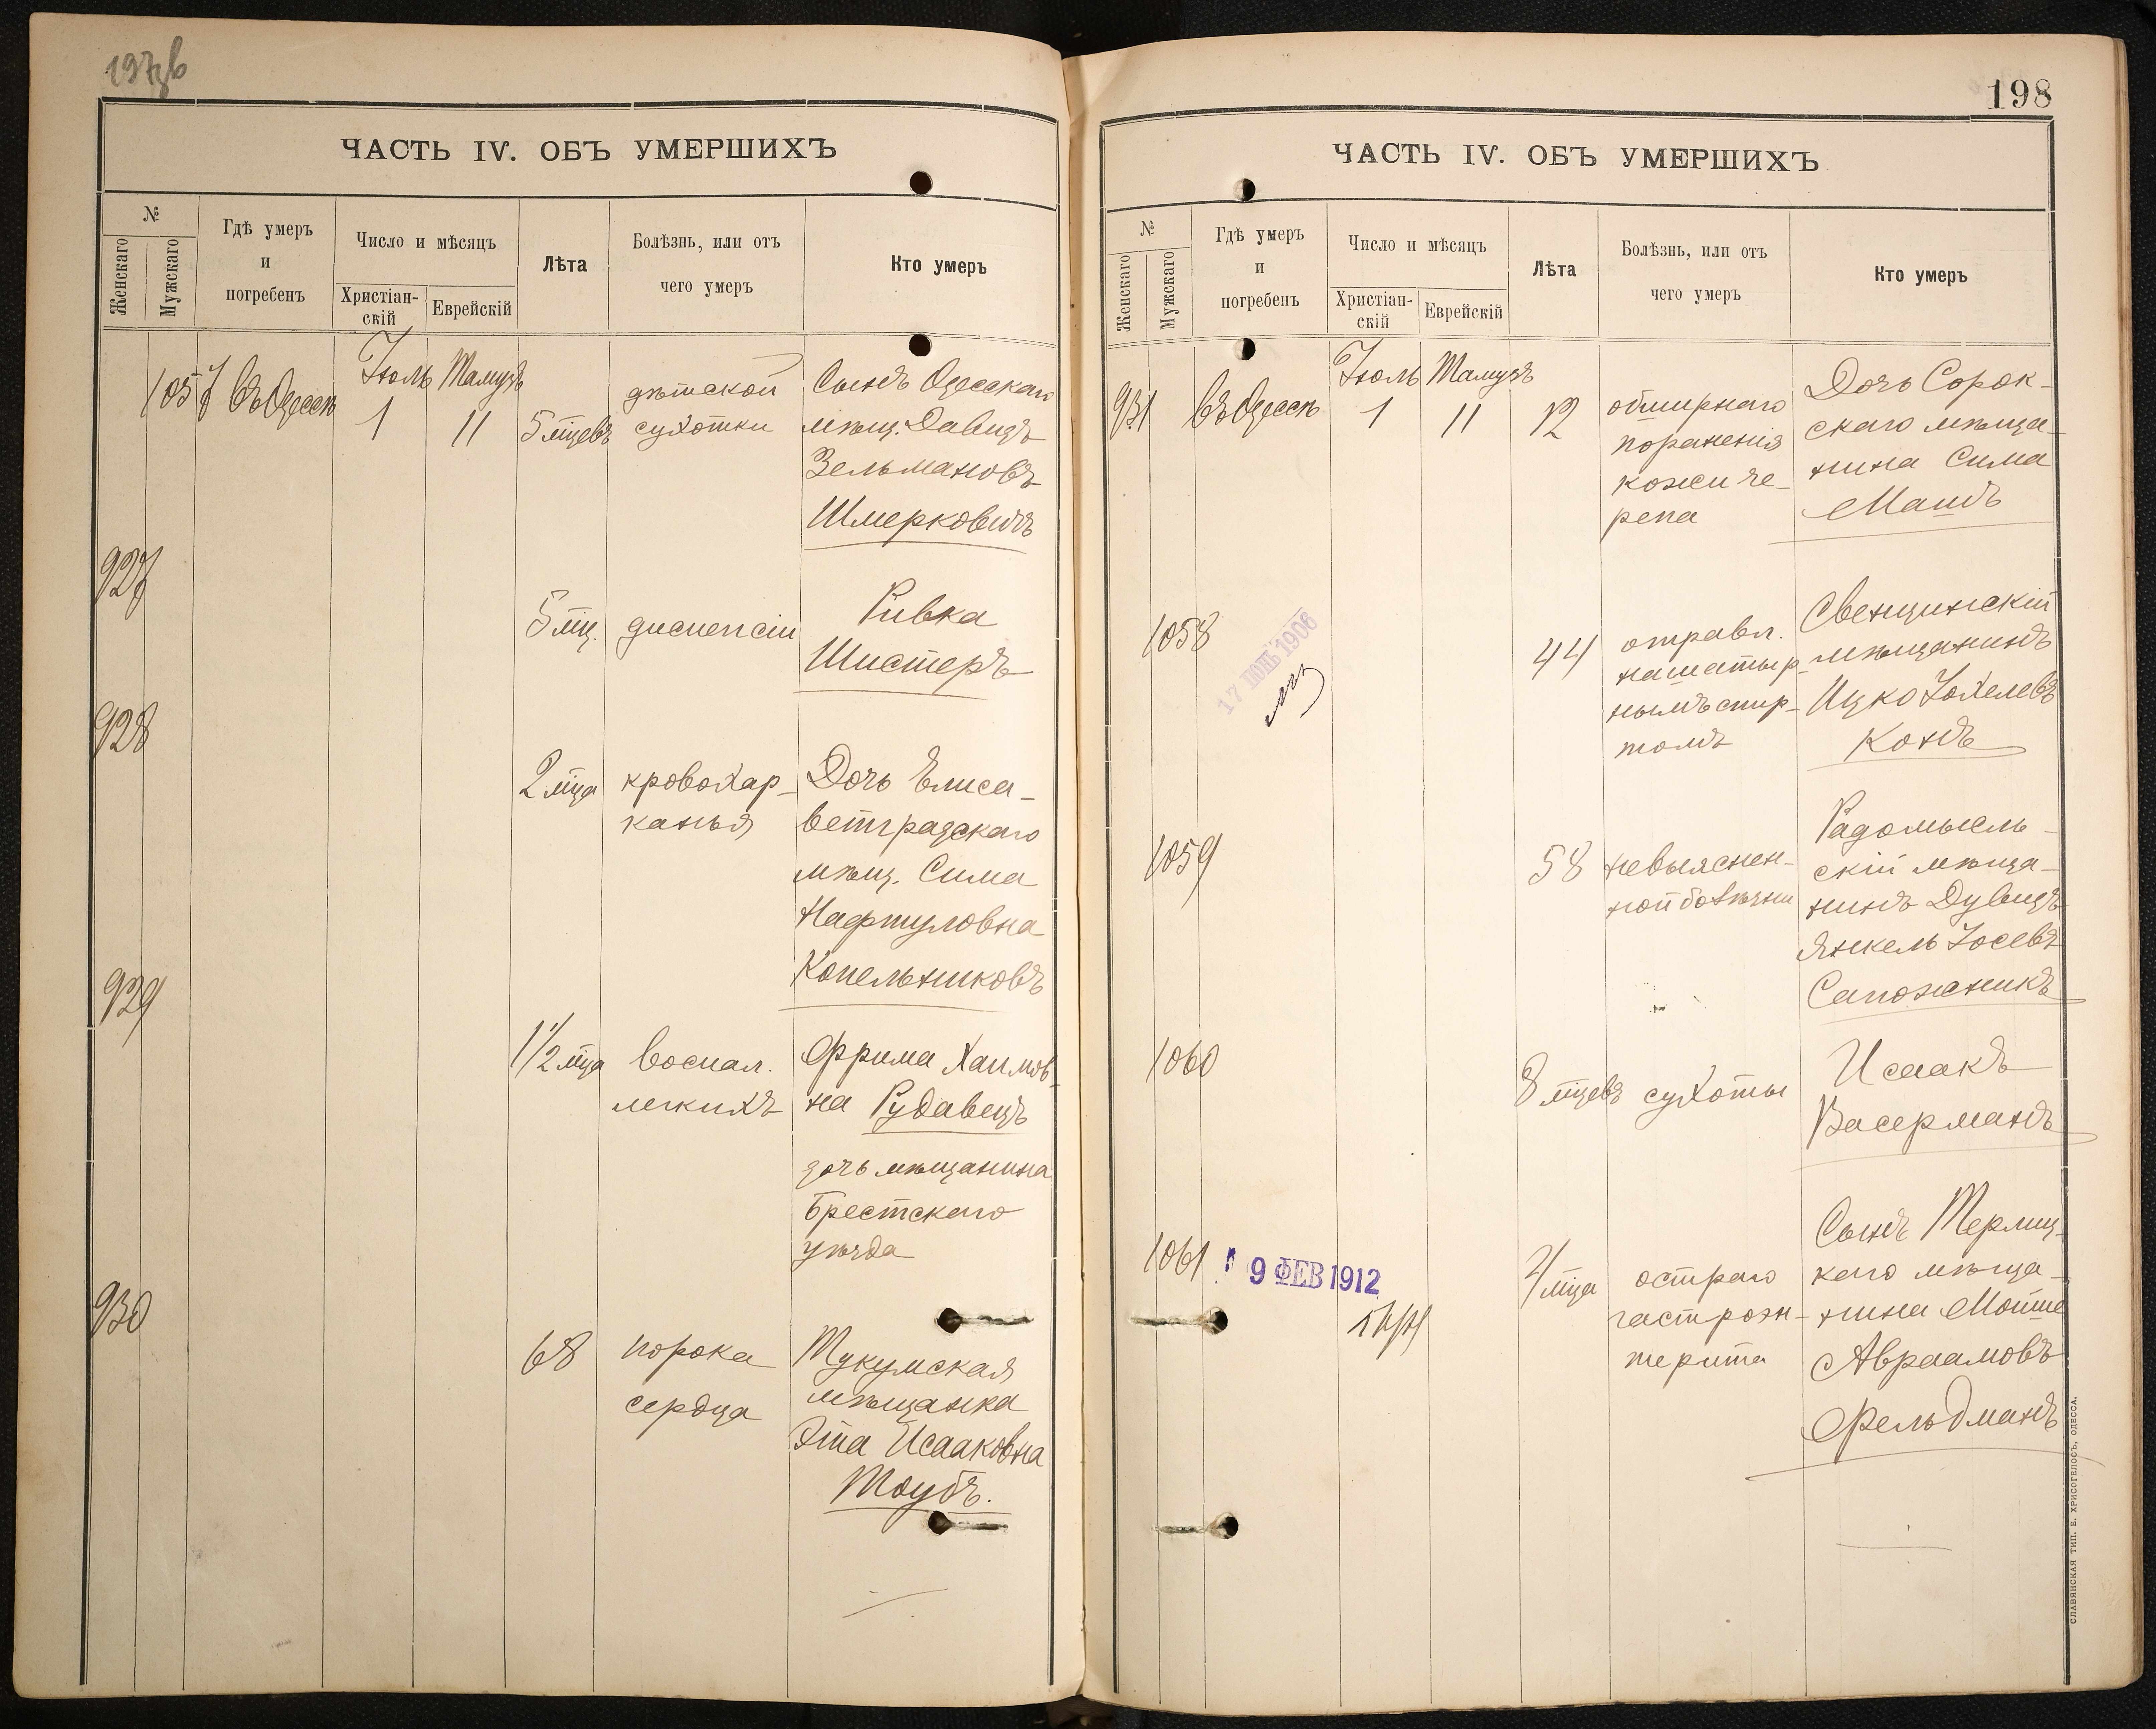 197об
ЧАСТЬ IV. ОБЪ УМЕРШИХЪ
№
Женскаго
Мужскаго
Гдѣ умеръ
и
погребенъ
Число и мѣсяцъ
Христіан-
скій
Еврейскій
Лѣта
Болѣзнь, или отъ
чего умеръ
Кто умеръ
1057 въ Одессѣ
Іюль Тамузъ
1 11
5 мцевъ
дѣтской
сухотки
Сынъ Одесскаго
мѣщ. Давидъ
Зельмановъ
Шмерковичъ
927
5 мц.
диспепсіи
Ривка
Шистеръ
928
2 мца
кровохар-
канья
Дочь Елиса-
ветградскаго
мѣщ. Сима
Нафтуловна
Копельниковъ
929
1 1/2 мца
воспал.
легкихъ
Фрима Хаимов-
на Рудавецъ
дочь мѣщанина
Брестскаго
уѣзда
930
68
порока
сердца
Тукумская
мѣщанка
Эта Исааковна
Таубъ.
198
ЧАСТЬ IV. ОБЪ УМЕРШИХЪ
№
Женскаго
Мужскаго
Гдѣ умеръ
и
погребенъ
Число и мѣсяцъ
Христіан-
скій
Еврейскій
Лѣта
Болѣзнь, или отъ
чего умеръ
Кто умеръ
931 въ Одессѣ
Іюль Тамузъ
1 11
12
обширнаго
пораненія
кожи че-
репа
Дочь Сорок-
скаго мѣща-
нина Сима
Машъ
1058
17 ІЮНЬ 1906
44
отравл.
нашатыр-
нымъ спир-
томъ
Свенцинскій
мѣщанинъ
Ицко Іохелевъ
Конъ
1059
58
невыяснен-
ной болѣзни
Радомысль-
скій мѣща-
нинъ Дувидъ
Янкель Іосевъ
Сапожникъ
1060
8 мцевъ
сухоты
Исаакъ
Васерманъ
1061
9 ФЕВ 1912
4 мца
остраго
гастроэн-
терита
Сынъ Терлиц-
каго мѣща-
нина Мойше
Авраамовъ
Фельдманъ
СЛАВЯНСКАЯ ТИП. Е. ХРИСОГЕЛОСЪ, ОДЕССА.